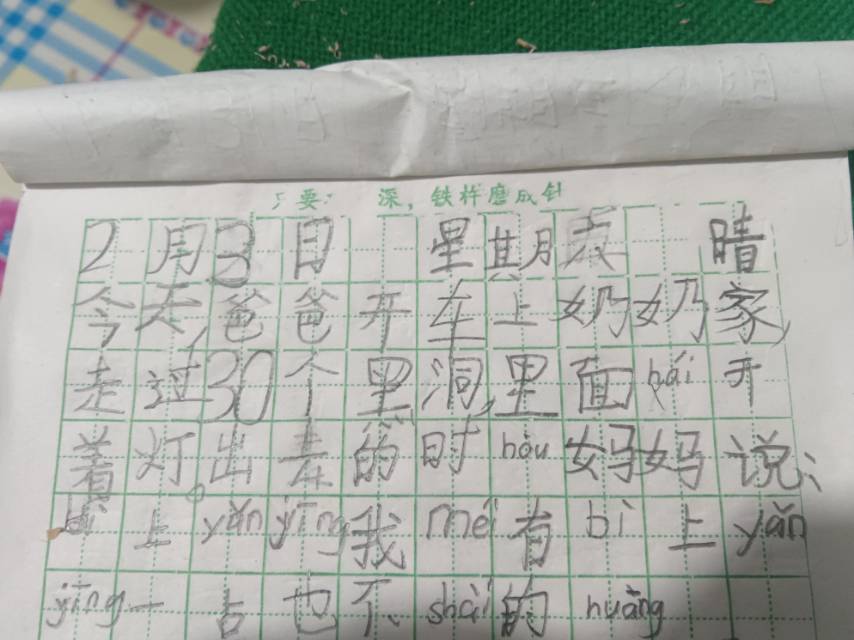 要 深，铁杵磨成针
2月3日 星期六 晴
今天，爸爸开车上奶奶家，
走过30个黑洞，里面hái开
着灯。出去的时hòu妈妈说：
上yǎn yīng我méi有bì上yǎn
yīng一点也不shài的huāng